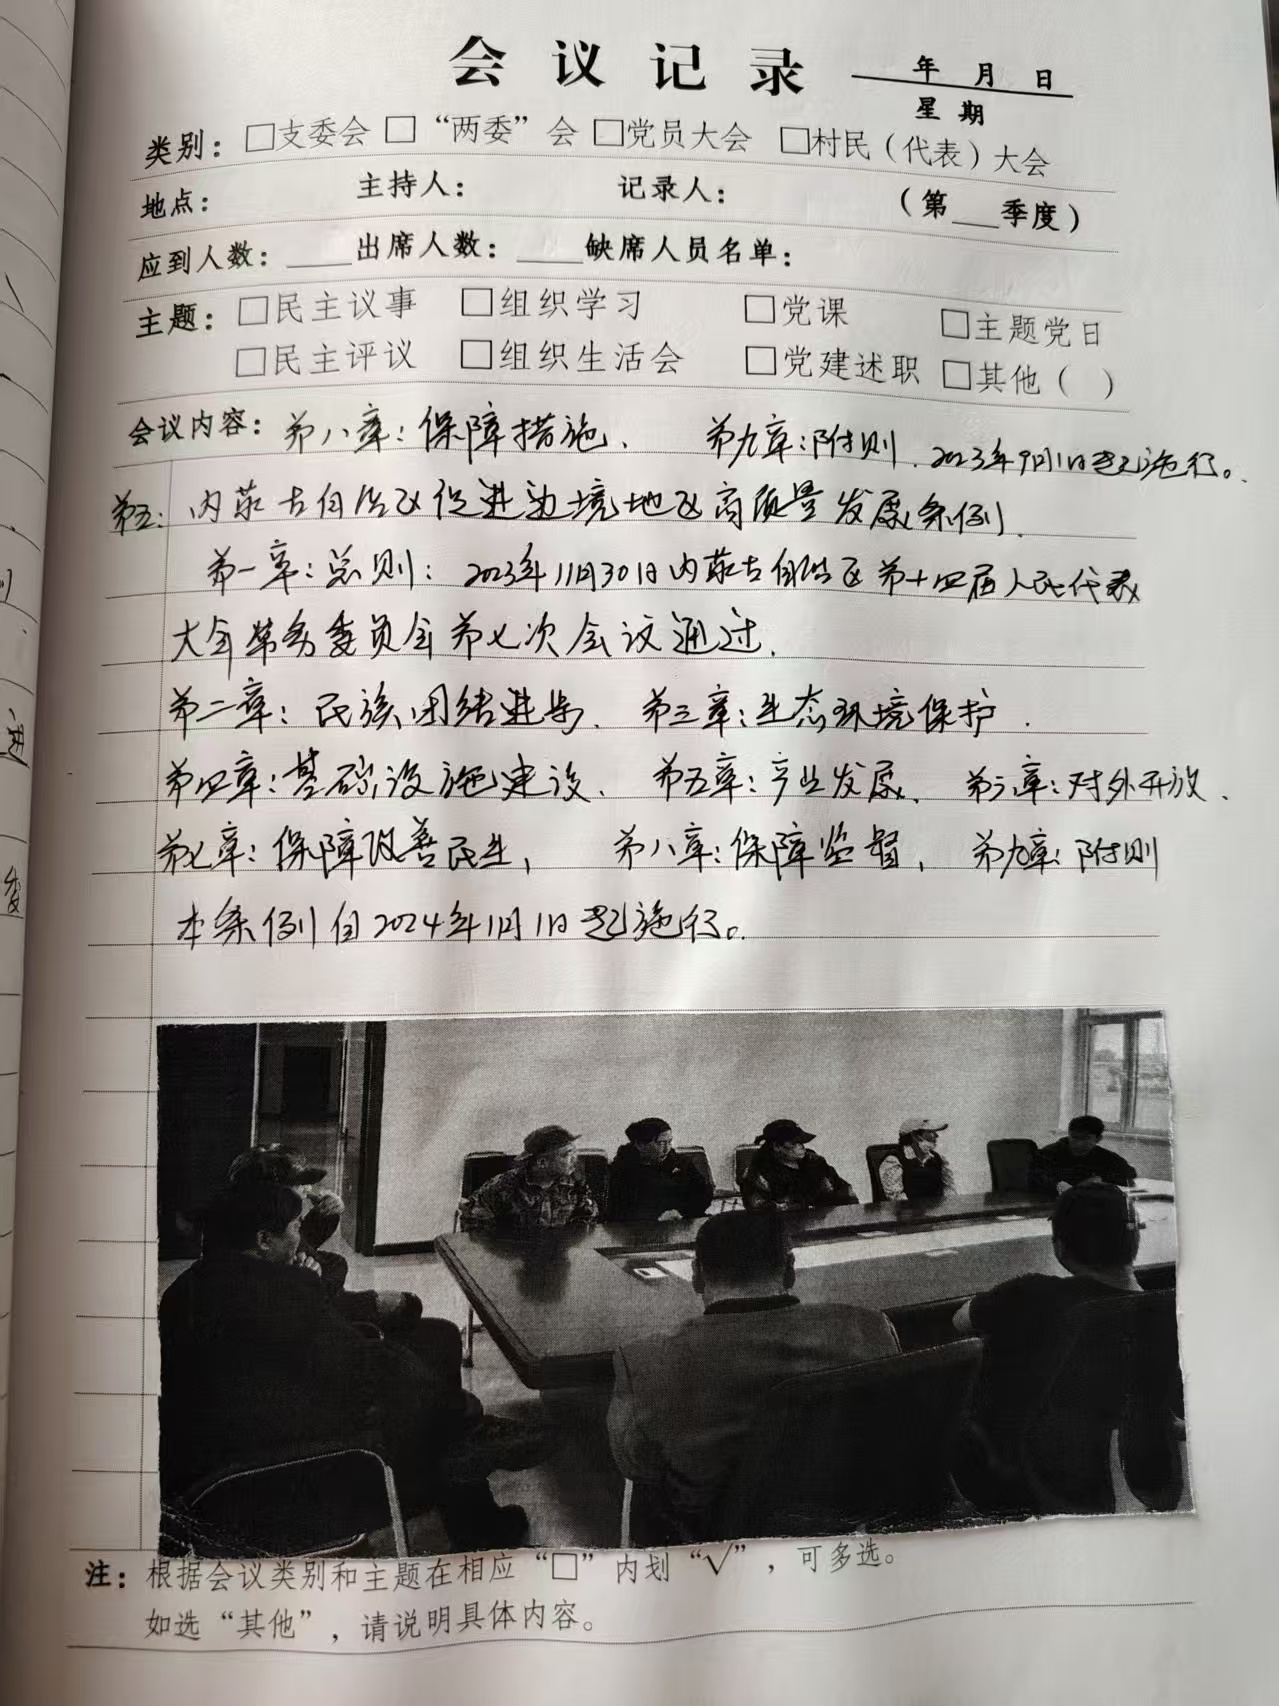 会议记录 年 月 日
星期
类别：□支委会 □“两委”会 □党员大会 □村民（代表）大会
地点： 主持人： 记录人： （第__季度）
应到人数：____出席人数：____缺席人员名单：
主题：□民主议事 □组织学习 □党课 □主题党日
□民主评议 □组织生活会 □党建述职 □其他（ ）
会议内容：第八章：保障措施、 第九章：附则、2023年9月1日起施行。
第五：内蒙古自治区促进边境地区高质量发展条例、
第一章：总则：2023年11月30日内蒙古自治区第十四届人民代表
大会常务委员会第七次会议通过、
第二章：民族团结进步、 第三章：生态环境保护、
第四章：基础设施建设、 第五章：产业发展、 第六章：对外开放、
第七章：保障改善民生， 第八章：保障监督， 第九章：附则
本条例自2024年1月1日起施行。
注：根据会议类别和主题在相应“□”内划“√”，可多选。
如选“其他”，请说明具体内容。
进
发